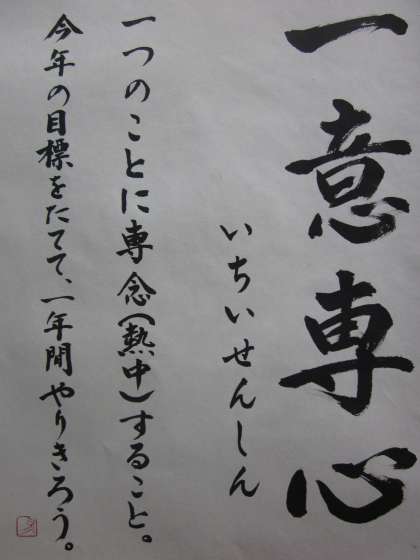 一意専心
いちいせんしん
一つのことに専念(熱中)すること。
今年の目標をたてて、一年間やりきろう。